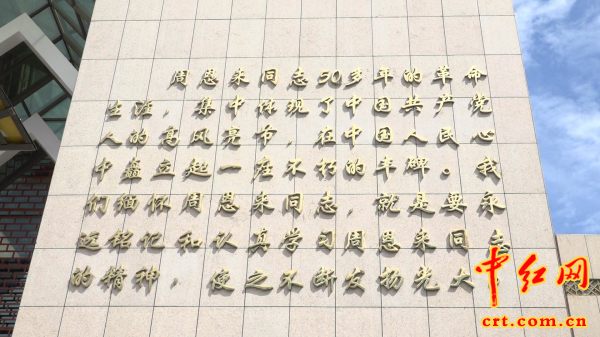 周恩来同志50多年的革命
生涯，集中体现了中国共产党
人的高风亮节，在中国人民心
中矗立起一座不朽的丰碑。我
们缅怀周恩来同志，就是要永
远铭记和认真学习周恩来同志
的精神，使之不断发扬光大
中红网
crt.com.cn